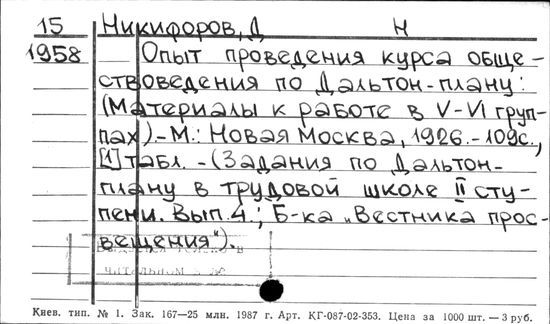 15 Никифоров, Д Н
1958 Опыт проведения курса обще-
ствоведения по Дальтон-плану:
(Материалы к работе в V-VI груп-
пах).-М.: Новая Москва, 1926.-109с.,
[1] табл. -(Задания по Дальтон-
плану в трудовой школе II сту-
пени. Вып. 4.; Б-ка „Вестника прос-
вещения").
в
читальном
Киев. тип. № 1. Зак. 167—25 млн. 1987 г. Арт. КГ-087-02-353. Цена за 1000 шт. — 3 руб.